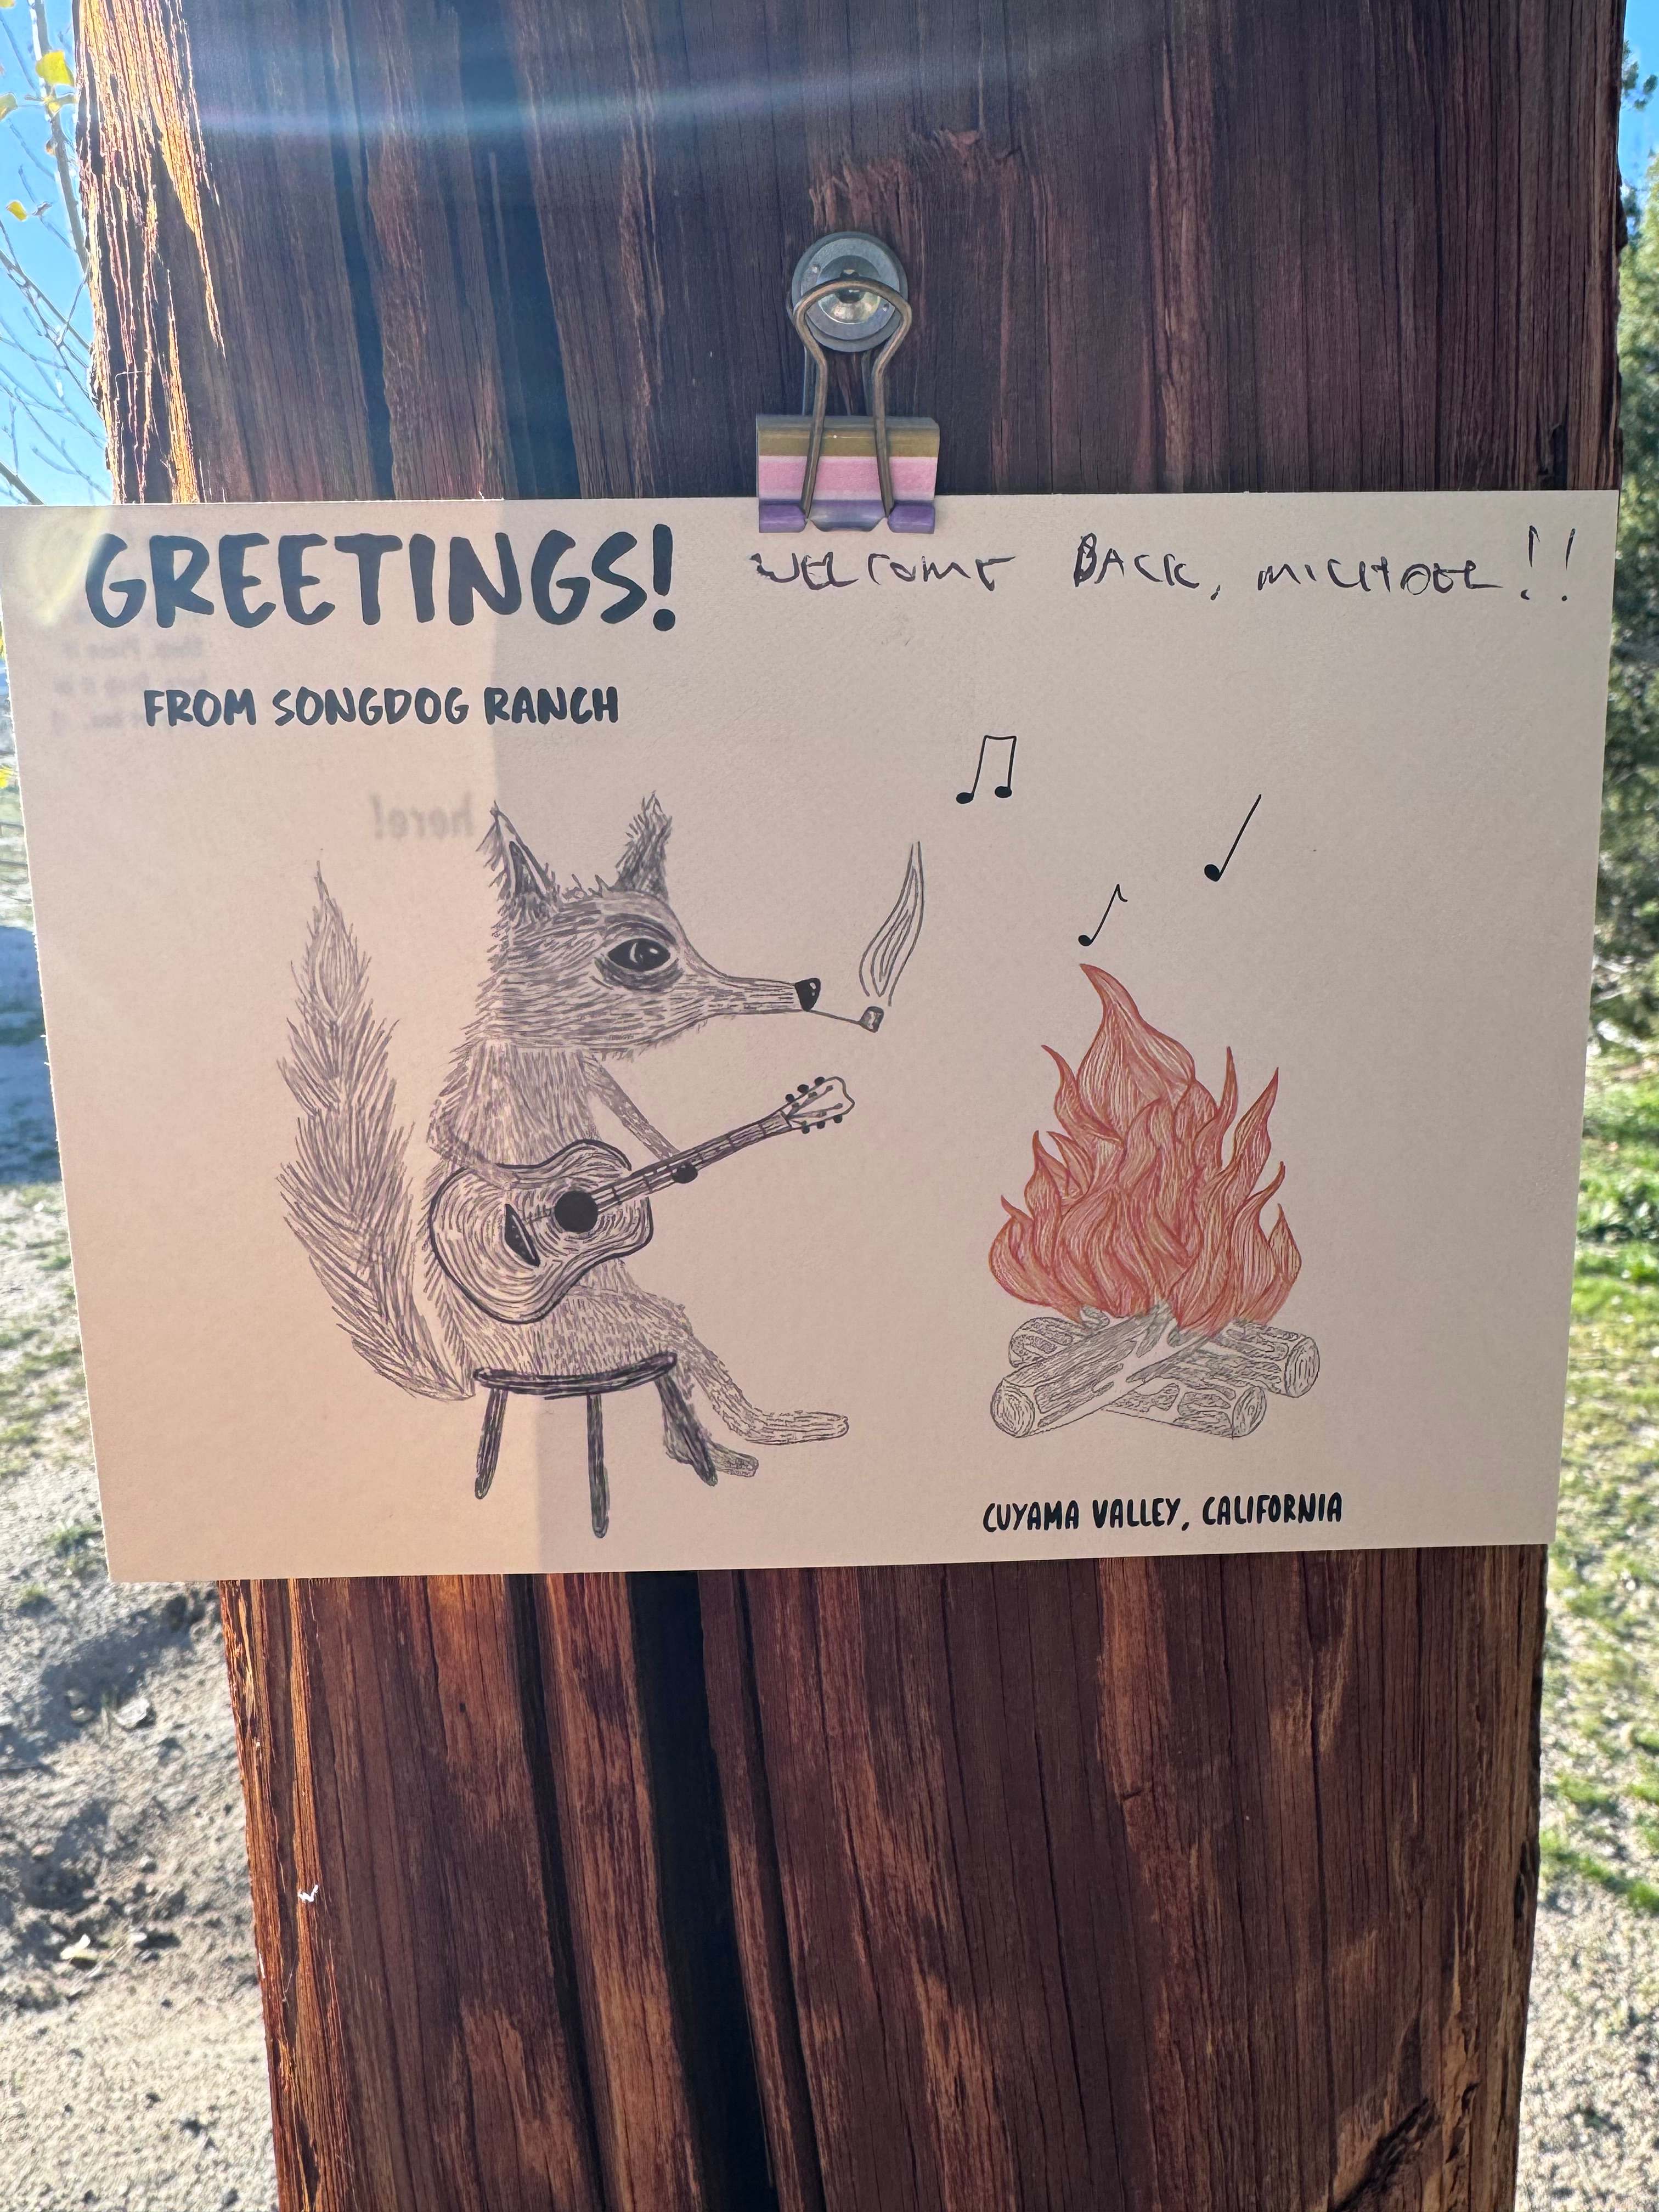 GREETINGS!
WELCOME BACK, MICHAEL!!
FROM SONGDOG RANCH
here!
CUYAMA VALLEY, CALIFORNIA